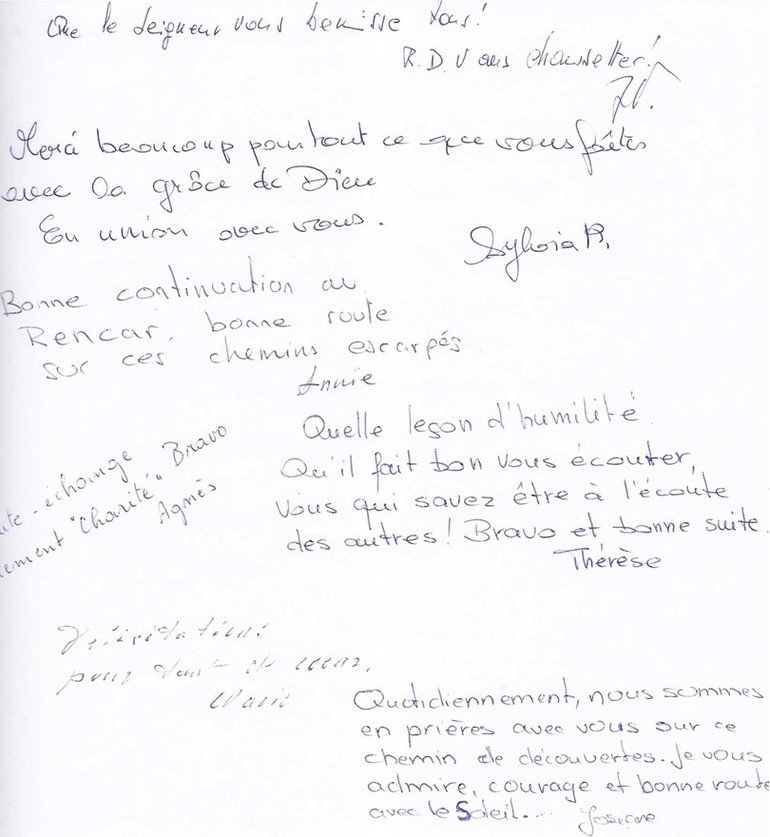 Que le Seigneur vous bénisse tous!
R.D.V aus chaussettes!
Merci beaucoup pour tout ce que vous faîtes
avec la grâce de Dieu
En union avec vous.
Sylvia B.
Bonne continuation au
Rencar, bonne route
sur ces chemins escarpés
Annie
Quelle leçon d'humilité
Qu'il fait bon vous écouter,
vous qui savez être à l'écoute
des autres! Bravo et bonne suite.
Thérèse
échange
"Charité" Bravo
Agnès
Félicitations
pour tant de cœur,
Marie
Quotidiennement, nous sommes
en prières avec vous sur ce
chemin de découvertes. Je vous
admire, courage et bonne route
avec le Soleil...
Josiane